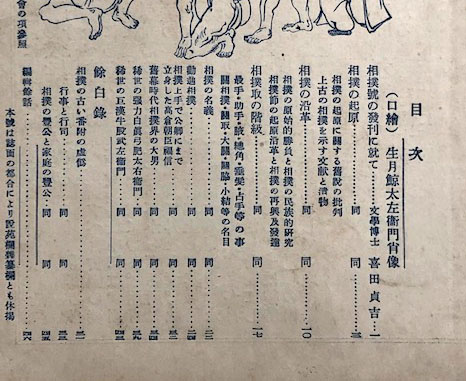 目次
（口繪）生月鯨太左衞門肖像
相撲號の發刊に就て……文學博士 喜田貞吉…一
相撲の起原……同……三
相撲の起原に關する舊説の批判
上古の相撲を示す文獻と遺物
相撲の沿革……同……一〇
相撲の原始的勝負と相撲の民族的研究
相撲節の起原沿革と相撲の再興及發達
相撲取の階級……同……一七
最手・助手・腋・總角・垂髮・占手等の事
關相撲・關取・大關・關脇・小結等の名目
相撲の名義……同……二二
勸進相撲……同……二四
相撲上手で公卿にまで
立身した高倉朝臣福信……同……三二
舊幕時代相撲界の大男……同……三四
稀世の强力白眞弓肥太右衞門……同……三九
稀世の巨漢牛股武左衞門……同……四三
餘白錄
相撲の古い番附の虛僞……三一
行事と行司……同……三三
相撲の豐公と家庭の豐公……同……四五
編輯餘話……四六
本號は誌面の都合により説苑欄雜纂欄とも休揭
會の項參照